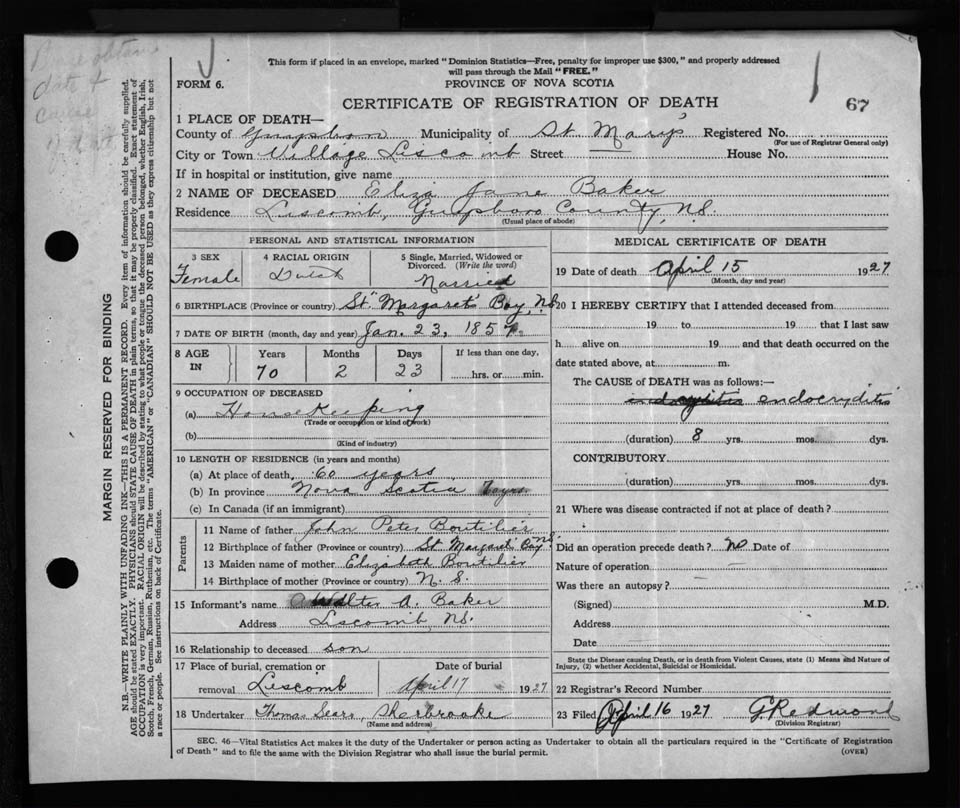 Please obtain
date &
cause
of death
This form if placed in an envelope, marked "Dominion Statistics—Free, penalty for improper use $300," and properly addressed
will pass through the Mail "FREE."
FORM 6.
PROVINCE OF NOVA SCOTIA
CERTIFICATE OF REGISTRATION OF DEATH
67
1 PLACE OF DEATH—
County of Guysboro Municipality of St. Mary's Registered No.
(For use of Registrar General only)
City or Town Village Liscomb Street — House No.
If in hospital or institution, give name
2 NAME OF DECEASED Eliza Jane Baker
Residence Liscomb, Guysboro County, N.S.
(Usual place of abode)
PERSONAL AND STATISTICAL INFORMATION
3 SEX Female
4 RACIAL ORIGIN
5 Single, Married, Widowed or
Divorced. (Write the word)
Married
6 BIRTHPLACE (Province or country) St. Margaret's Bay, N.S.
7 DATE OF BIRTH (month, day and year) Jan. 23, 1857.
8 AGE IN Years 70 Months 2 Days 23 If less than one day, hrs. or min.
9 OCCUPATION OF DECEASED
(a) Housekeeping
(Trade or occupation or kind of work)
(b)
(Kind of industry)
10 LENGTH OF RESIDENCE (in years and months)
(a) At place of death, 60 years
(b) In province Nova Scotia
(c) In Canada (if an immigrant)
Parents
11 Name of father John Peter Boutilier
12 Birthplace of father (Province or country) St Margaret Bay N.S.
13 Maiden name of mother Elizabeth Boutilier
14 Birthplace of mother (Province or country) N. S.
15 Informant's name Walter A. Baker
Address Liscomb, N.S.
16 Relationship to deceased son
17 Place of burial, cremation or Date of burial
removal Liscomb April 17 1927
18 Undertaker Thomas Sears, Sherbrooke
(Name and address)
MEDICAL CERTIFICATE OF DEATH
19 Date of death April 15 1927
(Month, day and year)
20 I HEREBY CERTIFY that I attended deceased from
19 to 19 that I last saw
h alive on 19 and that death occurred on the
date stated above, at m.
The CAUSE of DEATH was as follows:—
endocryditis
(duration) 8 yrs. mos. dys.
CONTRIBUTORY.
(duration) yrs. mos. dys.
21 Where was disease contracted if not at place of death?
Did an operation precede death? no Date of
Nature of operation —
Was there an autopsy? —
(Signed) M.D.
Address
Date
State the Disease causing Death, or in death from Violent Causes, state (1) Means and Nature of
Injury, (2) whether Accidental, Suicidal or Homicidal.
22 Registrar's Record Number
23 Filed April 16 1927 G Redmond
(Division Registrar)
SEC. 46—Vital Statistics Act makes it the duty of the Undertaker or person acting as Undertaker to obtain all the particulars required in the "Certificate of Registration
of Death" and to file the same with the Division Registrar who shall issue the burial permit. (OVER)
MARGIN RESERVED FOR BINDING
N.B.—WRITE PLAINLY WITH UNFADING INK—THIS IS A PERMANENT RECORD. Every item of information should be carefully supplied.
AGE should be stated EXACTLY. PHYSICIANS should STATE CAUSE OF DEATH in plain terms, so that it may be properly classified. Exact statement of
OCCUPATION is very important. RACIAL ORIGIN will be described by stating to what people or tongue the deceased person belonged, whether English, Irish,
Scotch, French, German, Russian, Ruthenian, etc. The terms "AMERICAN" or "CANADIAN" SHOULD NOT BE USED as they express citizenship but not
a race or people. See instructions on back of Certificate.